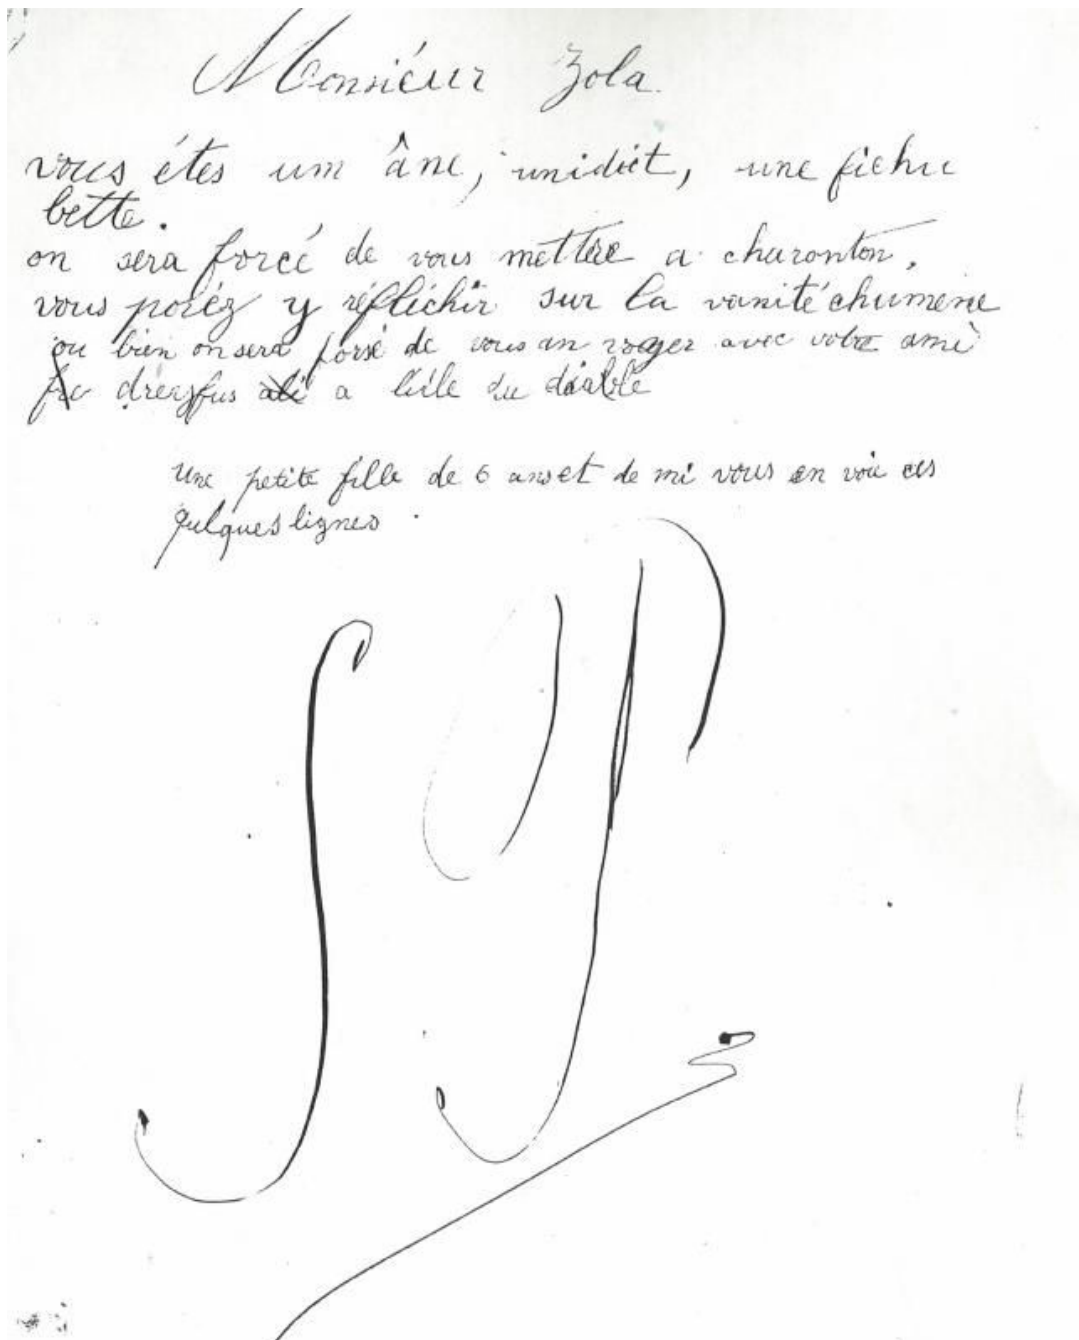 Monsiéur Zola.
vous étes um âne, unidiót, une fichue
bette.
on sera forcé de vous mettere a charonton,
vous poréz y réfléchir sur la vanité chumene
ou bien on sera forsé de vous an voyer avec votre ami
dreyfus a lille du diable
Une petite fille de 6 ans et de mi vous en voie ces
qulques lignes.
S P